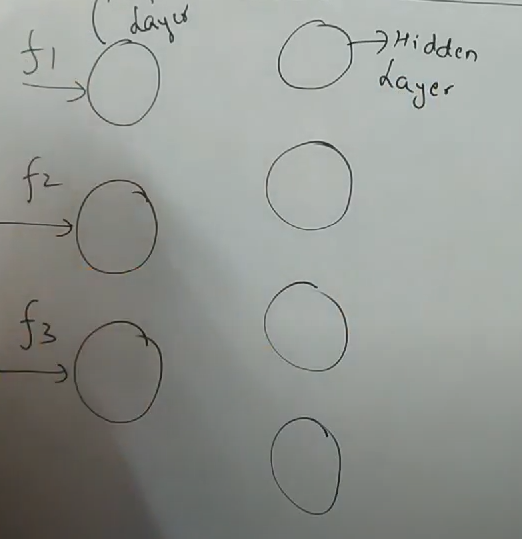 Layer
f1
Hidden
Layer
f2
f3